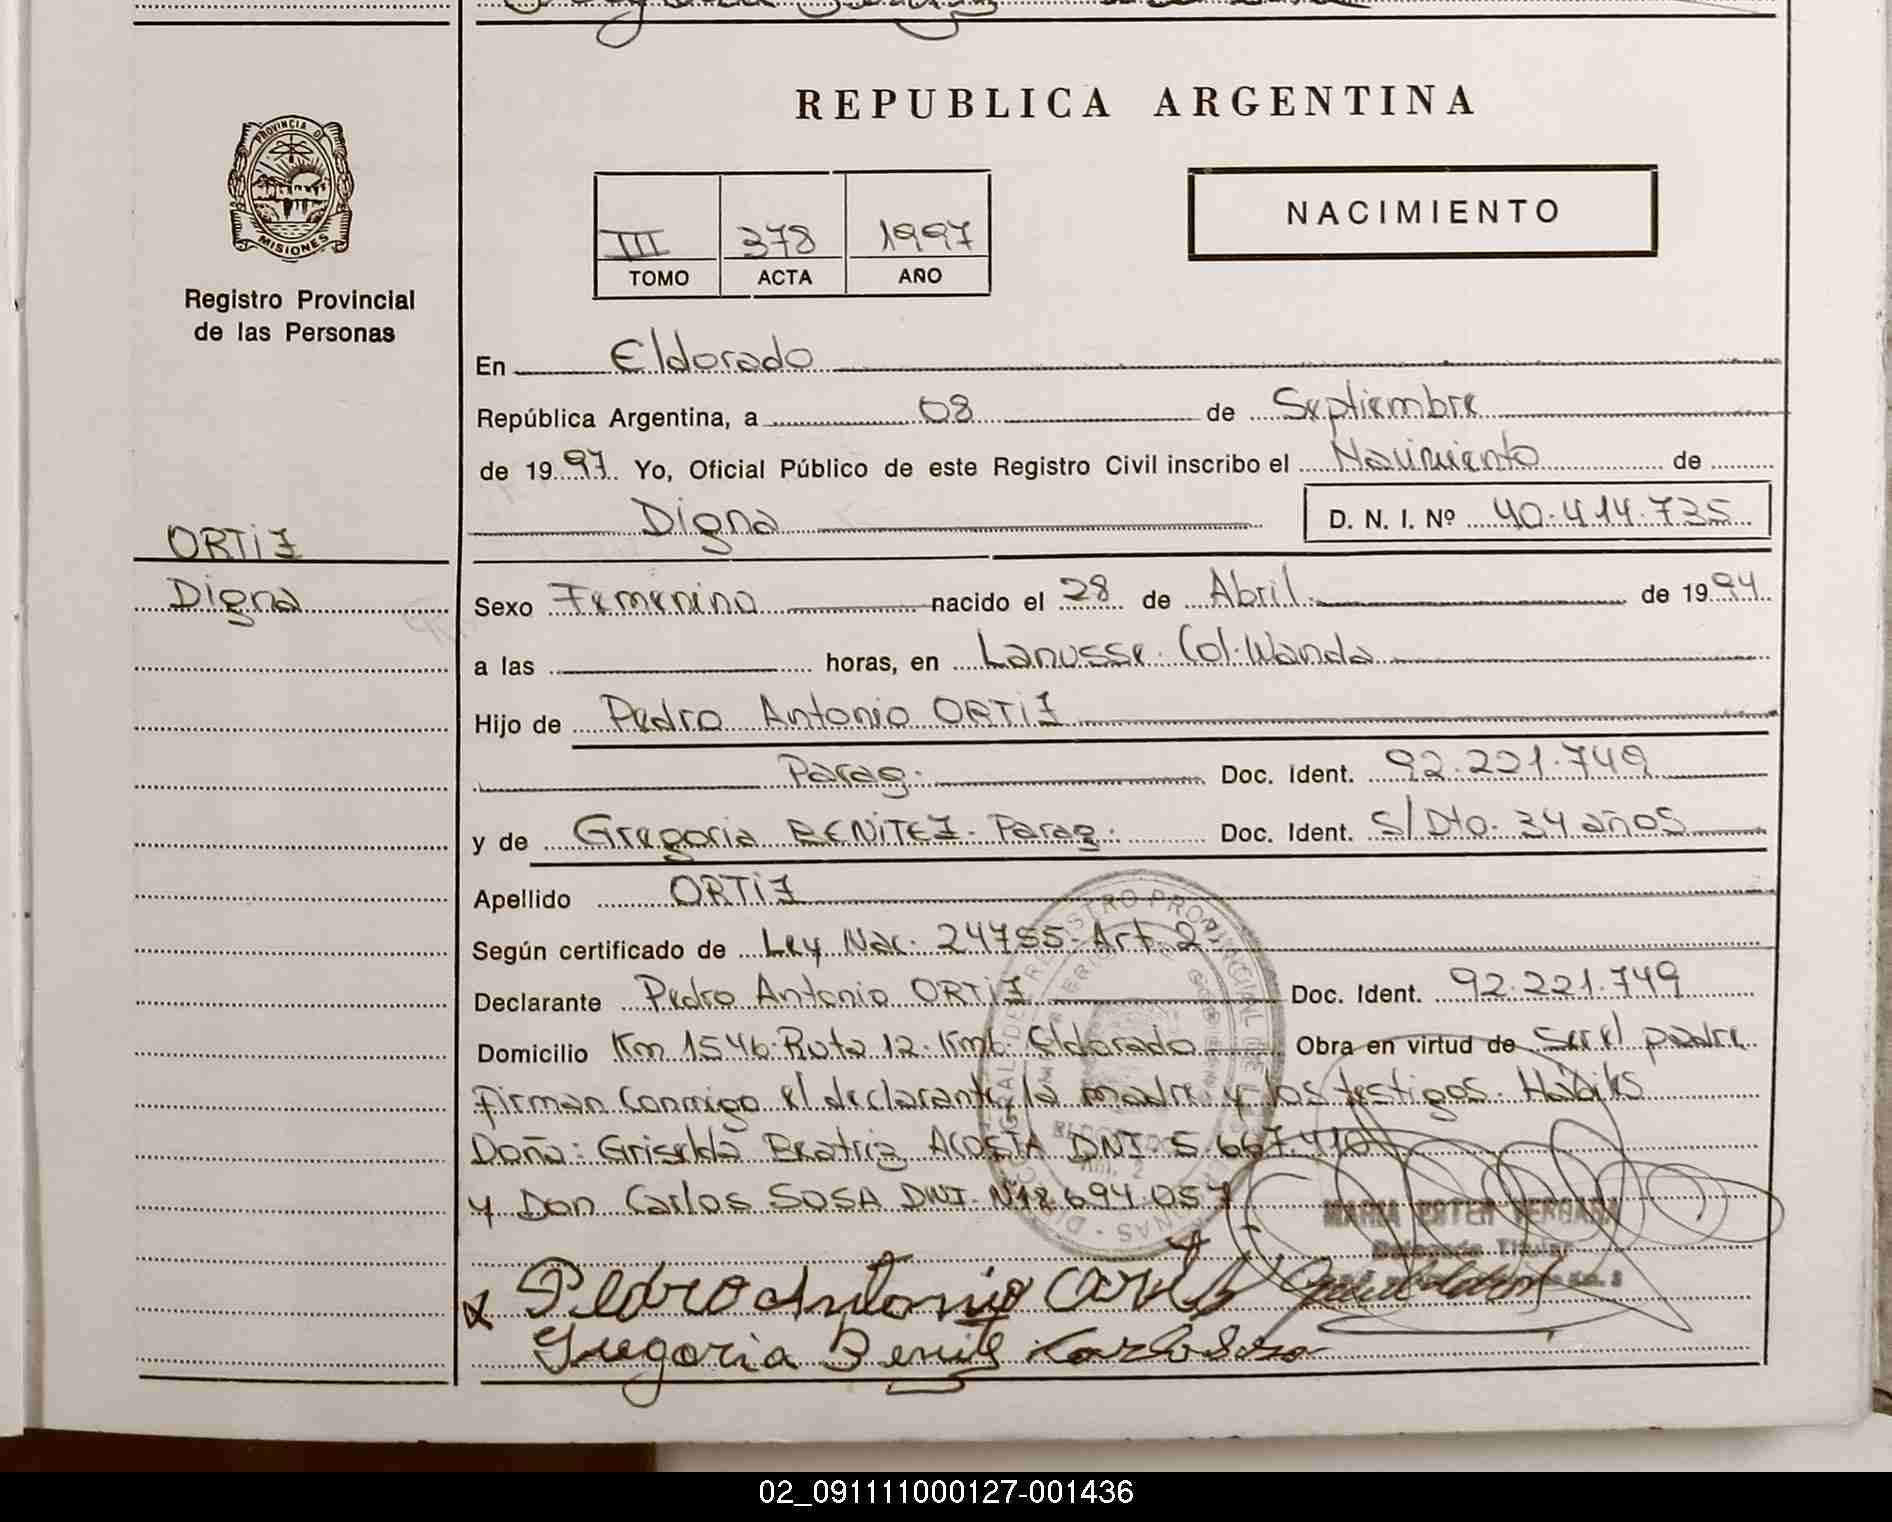 REPUBLICA ARGENTINA
PROVINCIA D
MISIONES
Registro Provincial
de las Personas
III 378 1997
TOMO ACTA AÑO
NACIMIENTO
En Eldorado
República Argentina, a 08 de Septiembre
de 1997 Yo, Oficial Público de este Registro Civil inscribo el Nacimiento de
Digna D. N. I. Nº 40.414.735
ORTIZ
Digna
Sexo Femenino nacido el 28 de Abril de 1994
a las horas, en Lanusse. Col. Wanda
Hijo de Pedro Antonio ORTIZ
Parag. Doc. Ident. 92.221.749
y de Gregoria BENITEZ. Parag. Doc. Ident. S/Dto. 34 años
Apellido ORTIZ
Según certificado de Ley Nac. 24755. Art. 2
Declarante Pedro Antonio ORTIZ Doc. Ident. 92.221.749
Domicilio Km 1546. Ruta 12. Km6. Eldorado Obra en virtud de ser el padre
Firman conmigo el declarante, la madre y los testigos. Hábiles
Doña: Griselda Beatriz ACOSTA DNI. 5.667.410
y Don Carlos SOSA DNI. Nº 12.694.057
MARIA ESTER VERGARA
Delegada Titular
Pedro Antonio Ortiz
Gregoria Benitez Carlos Sosa
02_091111000127-001436